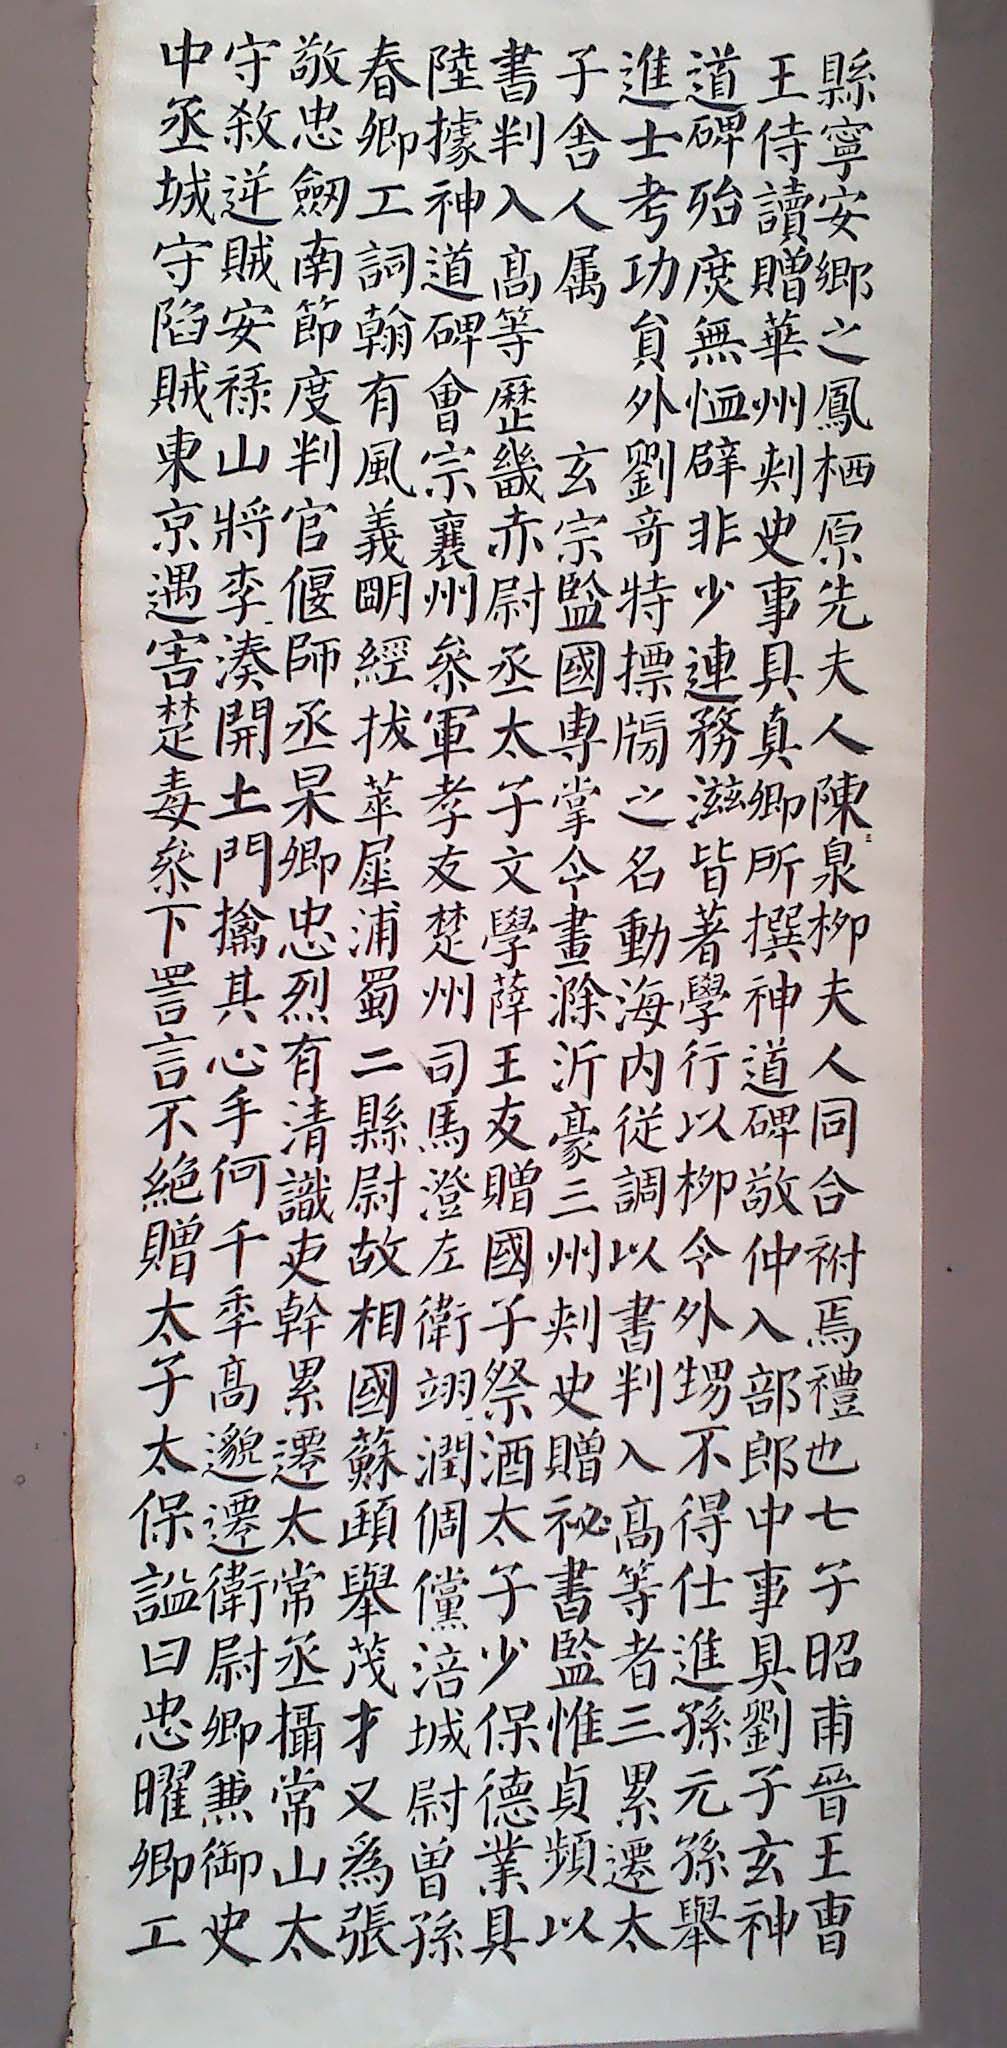 縣寧安鄉之鳳栖原先夫人陳泉柳夫人同合祔焉禮也七子昭甫晉王曹
王侍讀贈華州刾史事具真卿所撰神道碑敬仲入部郎中事具劉子玄神
道碑殆庶無恤辟非少連務滋皆著學行以柳令外甥不得仕進孫元孫舉
進士考功貟外劉奇特摽牓之名動海内從調以書判入高等者三累遷太
子舍人属　　玄宗監國專掌令畫滁沂豪三州刾史贈祕書監惟貞頻以
書判入高等歷畿赤尉丞太子文學薛王友贈國子祭酒太子少保德業具
陸據神道碑會宗襄州叅軍孝友楚州司馬澄左衛翊潤倜儻涪城尉曾孫
春卿工詞翰有風義明經拔萃犀浦蜀二縣尉故相國蘇頲舉茂才又為張
敬忠劔南節度判官偃師丞杲卿忠烈有清識吏幹累遷太常丞攝常山太
守敘逆賊安祿山將李湊開土門擒其心手何千秊高邈遷衛尉卿兼御史
中丞城守陷賊東京遇害楚毒叅下詈言不絶贈太子太保謚曰忠曜卿工